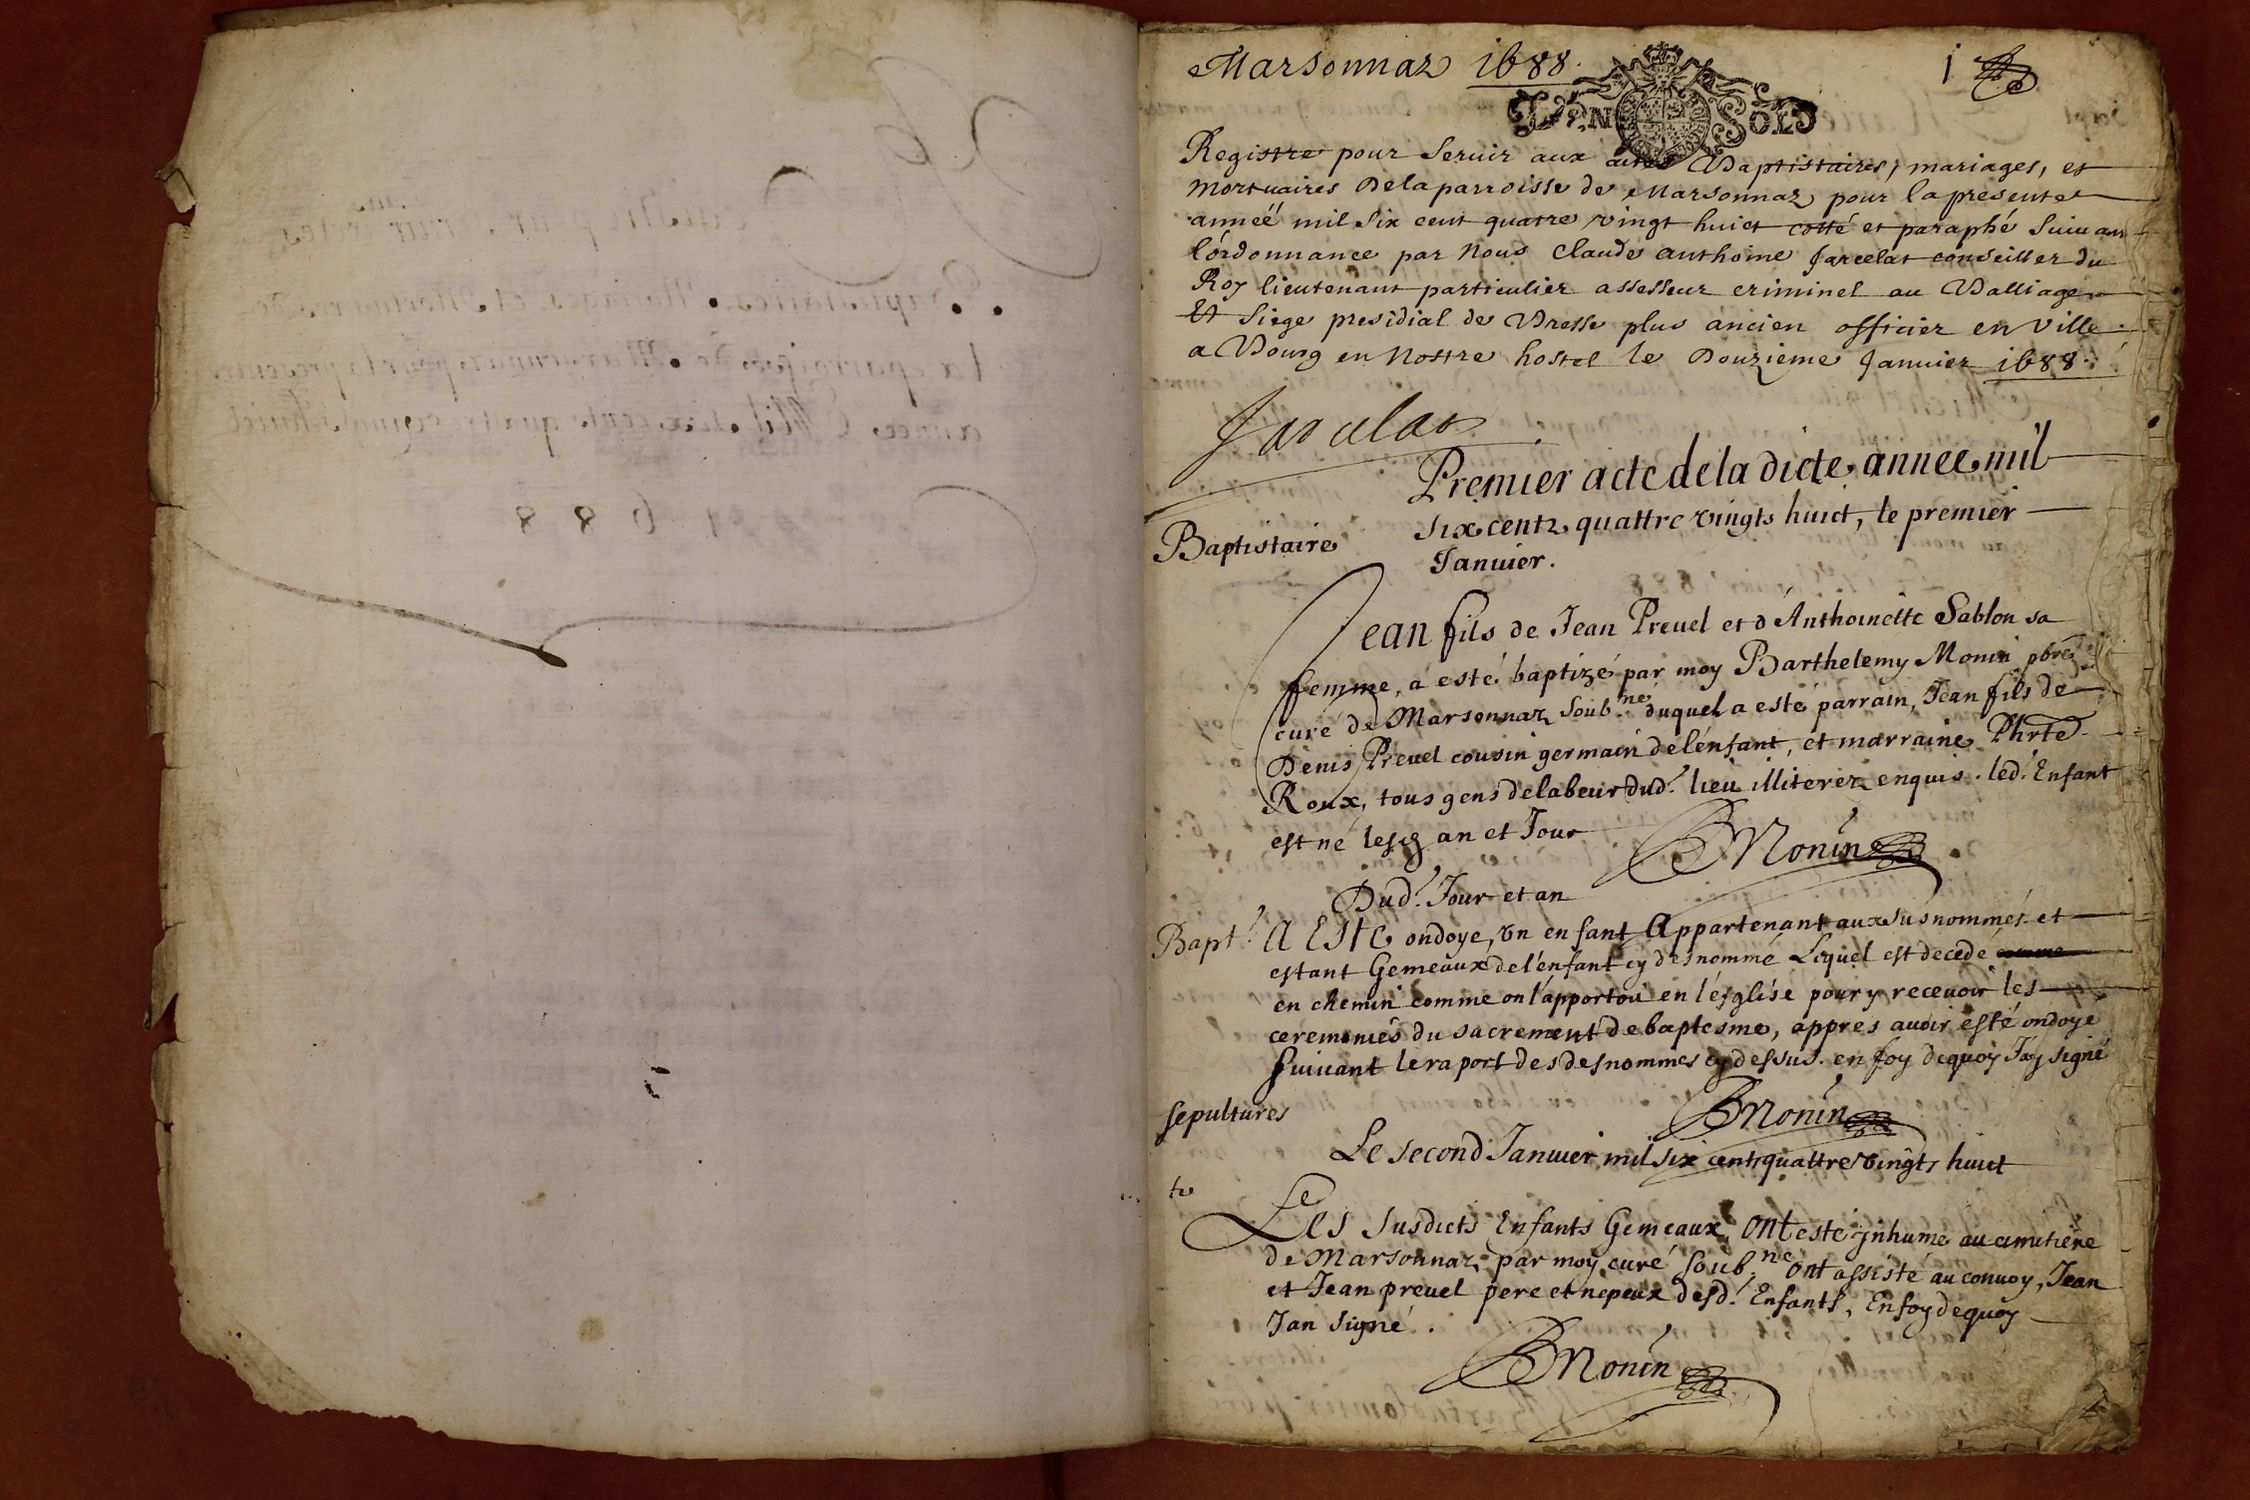 Marsonnaz 1688.
1
VN SOLD
Registre pour servir aux actes Baptistaires, mariages, et
mortuaires de la parroisse de Marsonnaz pour la presente
anneé mil six cent quatre vingt huict cotté et paraphé suivan
l'ordonnance par Nous Claude Anthoine Jarcelat conseiller du
Roy lieutenant particulier assesseur criminel au Balliage
Et siege presidial de Bresse plus ancien officier en ville
a Bourg en Nostre hostel le Douzieme Janvier 1688.
Jarcelat
Premier acte de la dicte annee mil
six centz quattre vingts huict, le premier
Baptistaire
Januier.
Jean fils de Jean Preuel et d'Anthoinette Sablon sa
femme, a esté baptizé par moy Barthelemy Monin pbre
curé de Marsonnaz soub.né duquel a esté parrain, Jean fils de
Denis Preuel cousin germain de l'enfant, et marraine Phrte
Roux, tous gens de labeur dud. lieu illiterez enquis. led. Enfant
est né lesd an et Jour
BMonin
Dud. Jour et an
Bapt.
A Esté ondoye, vn enfant Appartenant aux susnommés et
estant Gemeaux de l'enfant cy desnommé Lequel est decedé
en chemin comme on l'apportoi en l'esglise pour y recevoir les
ceremonies du sacrement de baptesme, appres auoir esté ondoye
suiuant le raport des desnommes cy dessus. en foy dequoy Jay signé
BMonin
sepultures
Le second Januier mil six cents quattre vingts huict
te
Les susdicts Enfants Gemeaux, ont esté jnhumé au cimitiere
de Marsonnaz, par moy curé soub.né ont assisté au conuoy, Jean
et Jean preuel pere et nepeux desd. Enfants, En foy dequoy
Jay signé.
BMonin